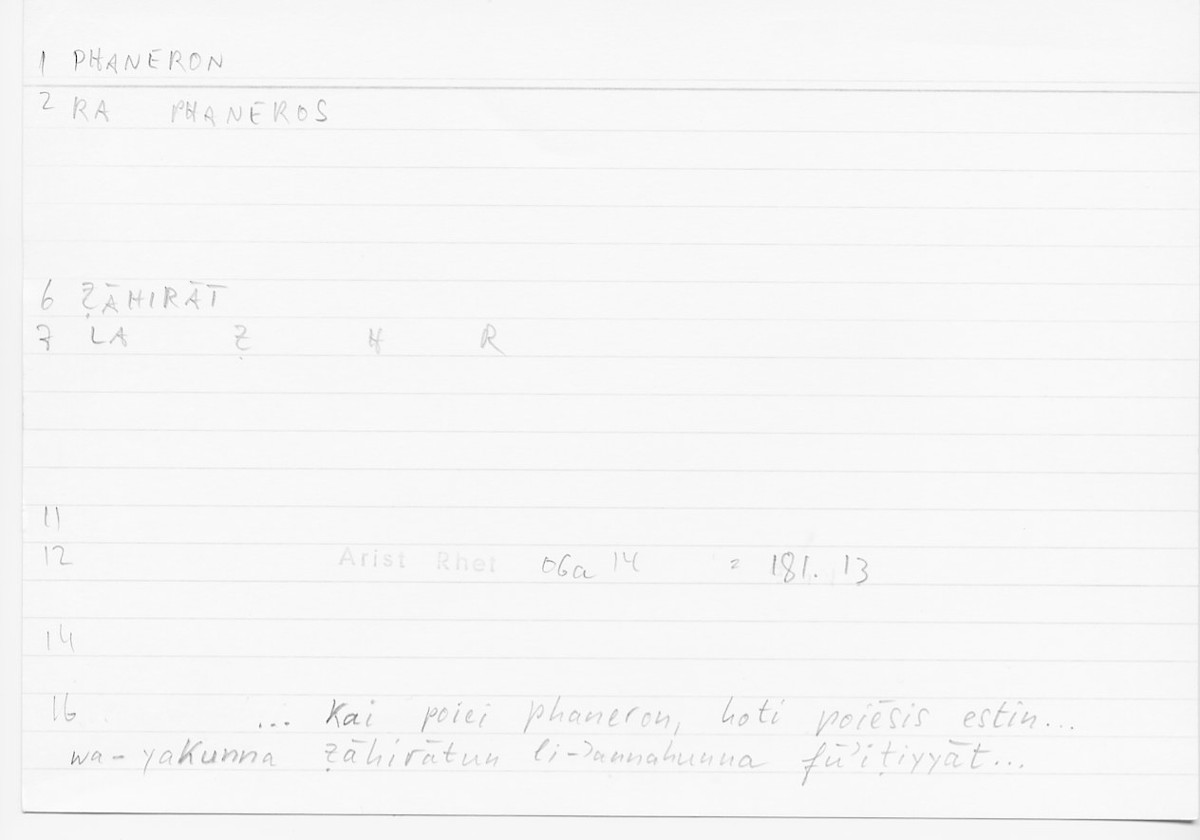 1 PHANERON
2 RA PHANEROS
6 ẒĀHIRĀT
7 LA Ẓ H R
11
12 Arist Rhet 06a 14 = 181. 13
14
16 ... kai poiei phaneron, hoti poiēsis estin...
wa-yakunna ẓāhirātun li-ʾannahunna fūʾiṭiyyāt...